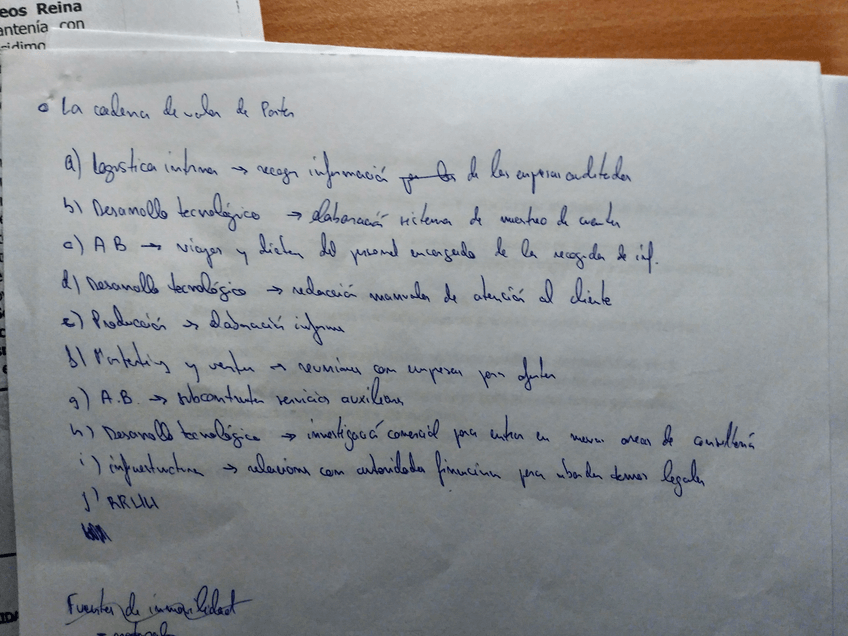 eos Reina
antenía con
cidimo
La cadena de valor de Porter
a) Logística interna → recoger información de las empresas auditadas
b) Desarrollo tecnológico → elaboración sistema de muestreo de cuentas
c) A B → viajes y dietas del personal encargado de la recogida de inf.
d) Desarrollo tecnológico → redacción manuales de atención al cliente
e) Producción → elaboración informe
f) Marketing y ventas → reuniones con empresas para ofertas
g) A.B. → subcontratar servicios auxiliares
h) Desarrollo tecnológico → investigació comercial para entrar en nuevas areas de consultoría
i) infraestructura → relaciones con autoridades financieras para abordar temas legales
j) RRHH
Fuentes de inmovilidad